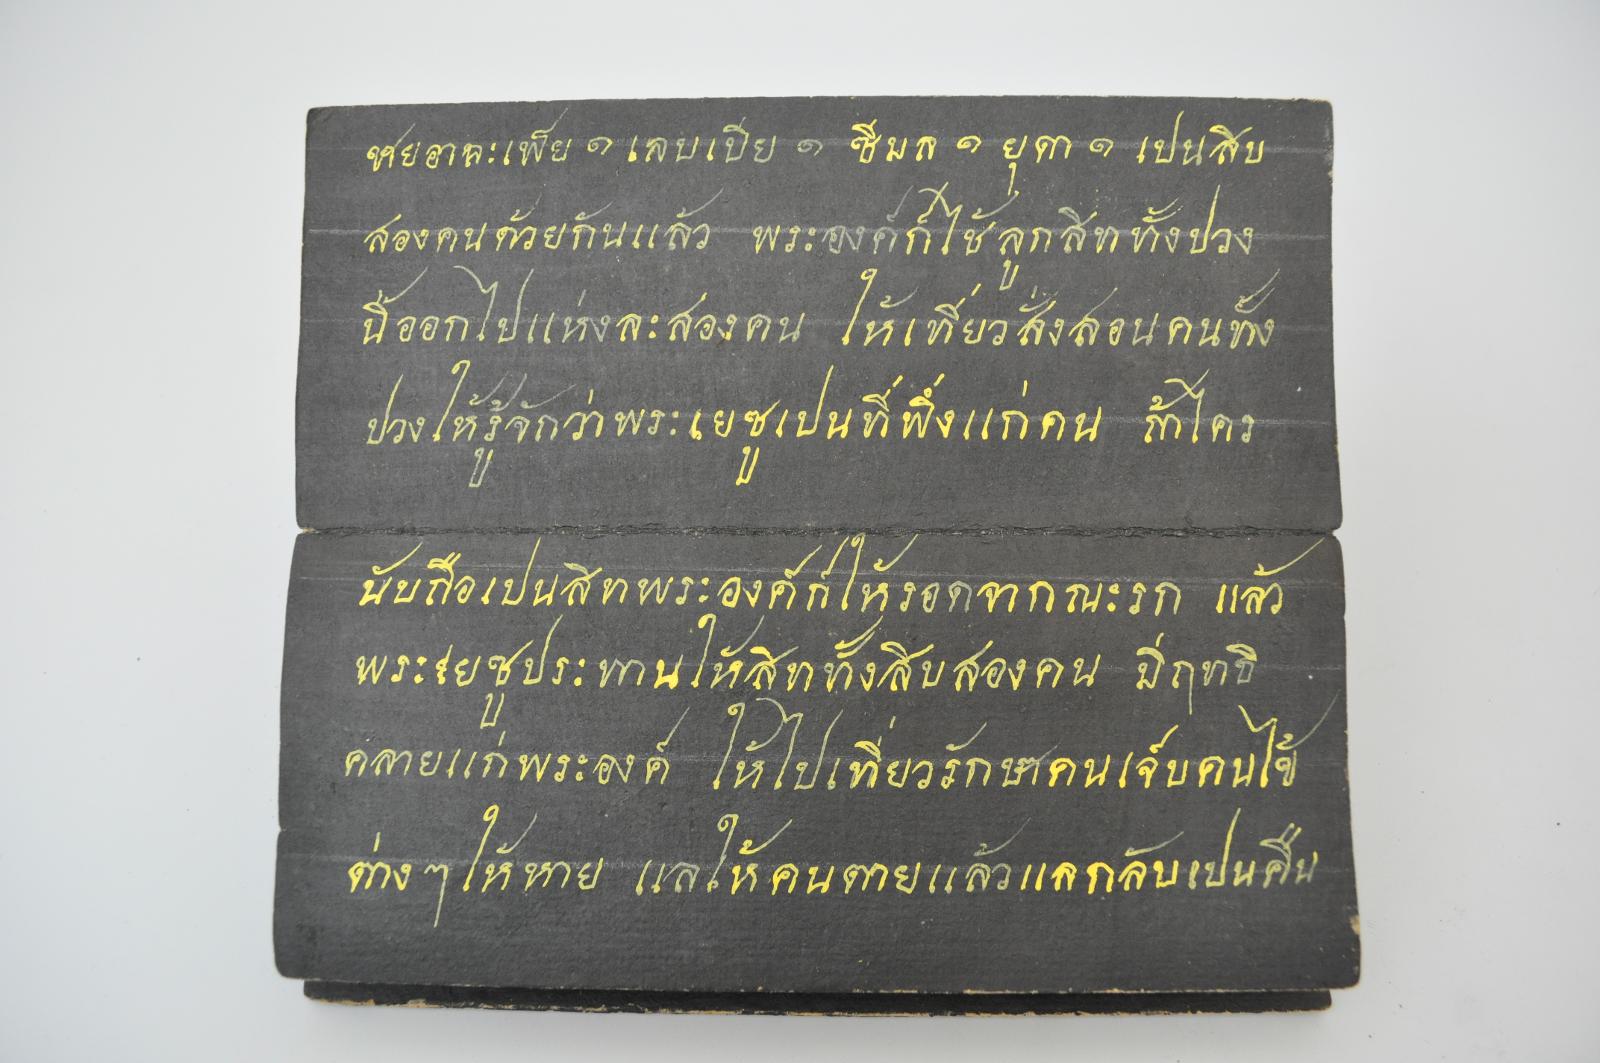 หยอาละเพ็ย ๑ เลบเปีย ๑ ซีมล ๑ ยุดา ๑ เปนสิบ
สองคนด้วยกันแล้ว พระองค์ก็ไช้ลูกสิททั้งปวง
นี้ออกไปแห่งละสองคน ให้เที่ยวสั่งสอนคนทั้ง
ปวงให้รู้จักว่าพระเยซูเปนที่พึ่งแก่คน ถ้าไคร
นับถือเปนสิทพระองค์ก็ให้รอดจากณะรก แล้ว
พระเยซูประทานให้สิททั้งสิบสองคน มีฤทธิ
คลายแก่พระองค์ ให้ไปเที่ยวรักษาคนเจ็บคนไข้
ต่างๆให้หาย แลให้คนตายแล้วแลกลับเปนคืน